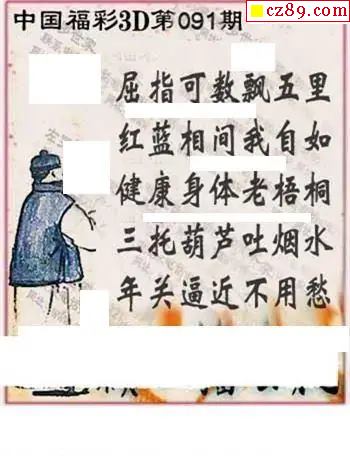 cz89.com
中国福彩3D第091期
屈指可数飘五里
红蓝相间我自如
健康身体老梧桐
三托葫芦吐烟水
年关逼近不用愁